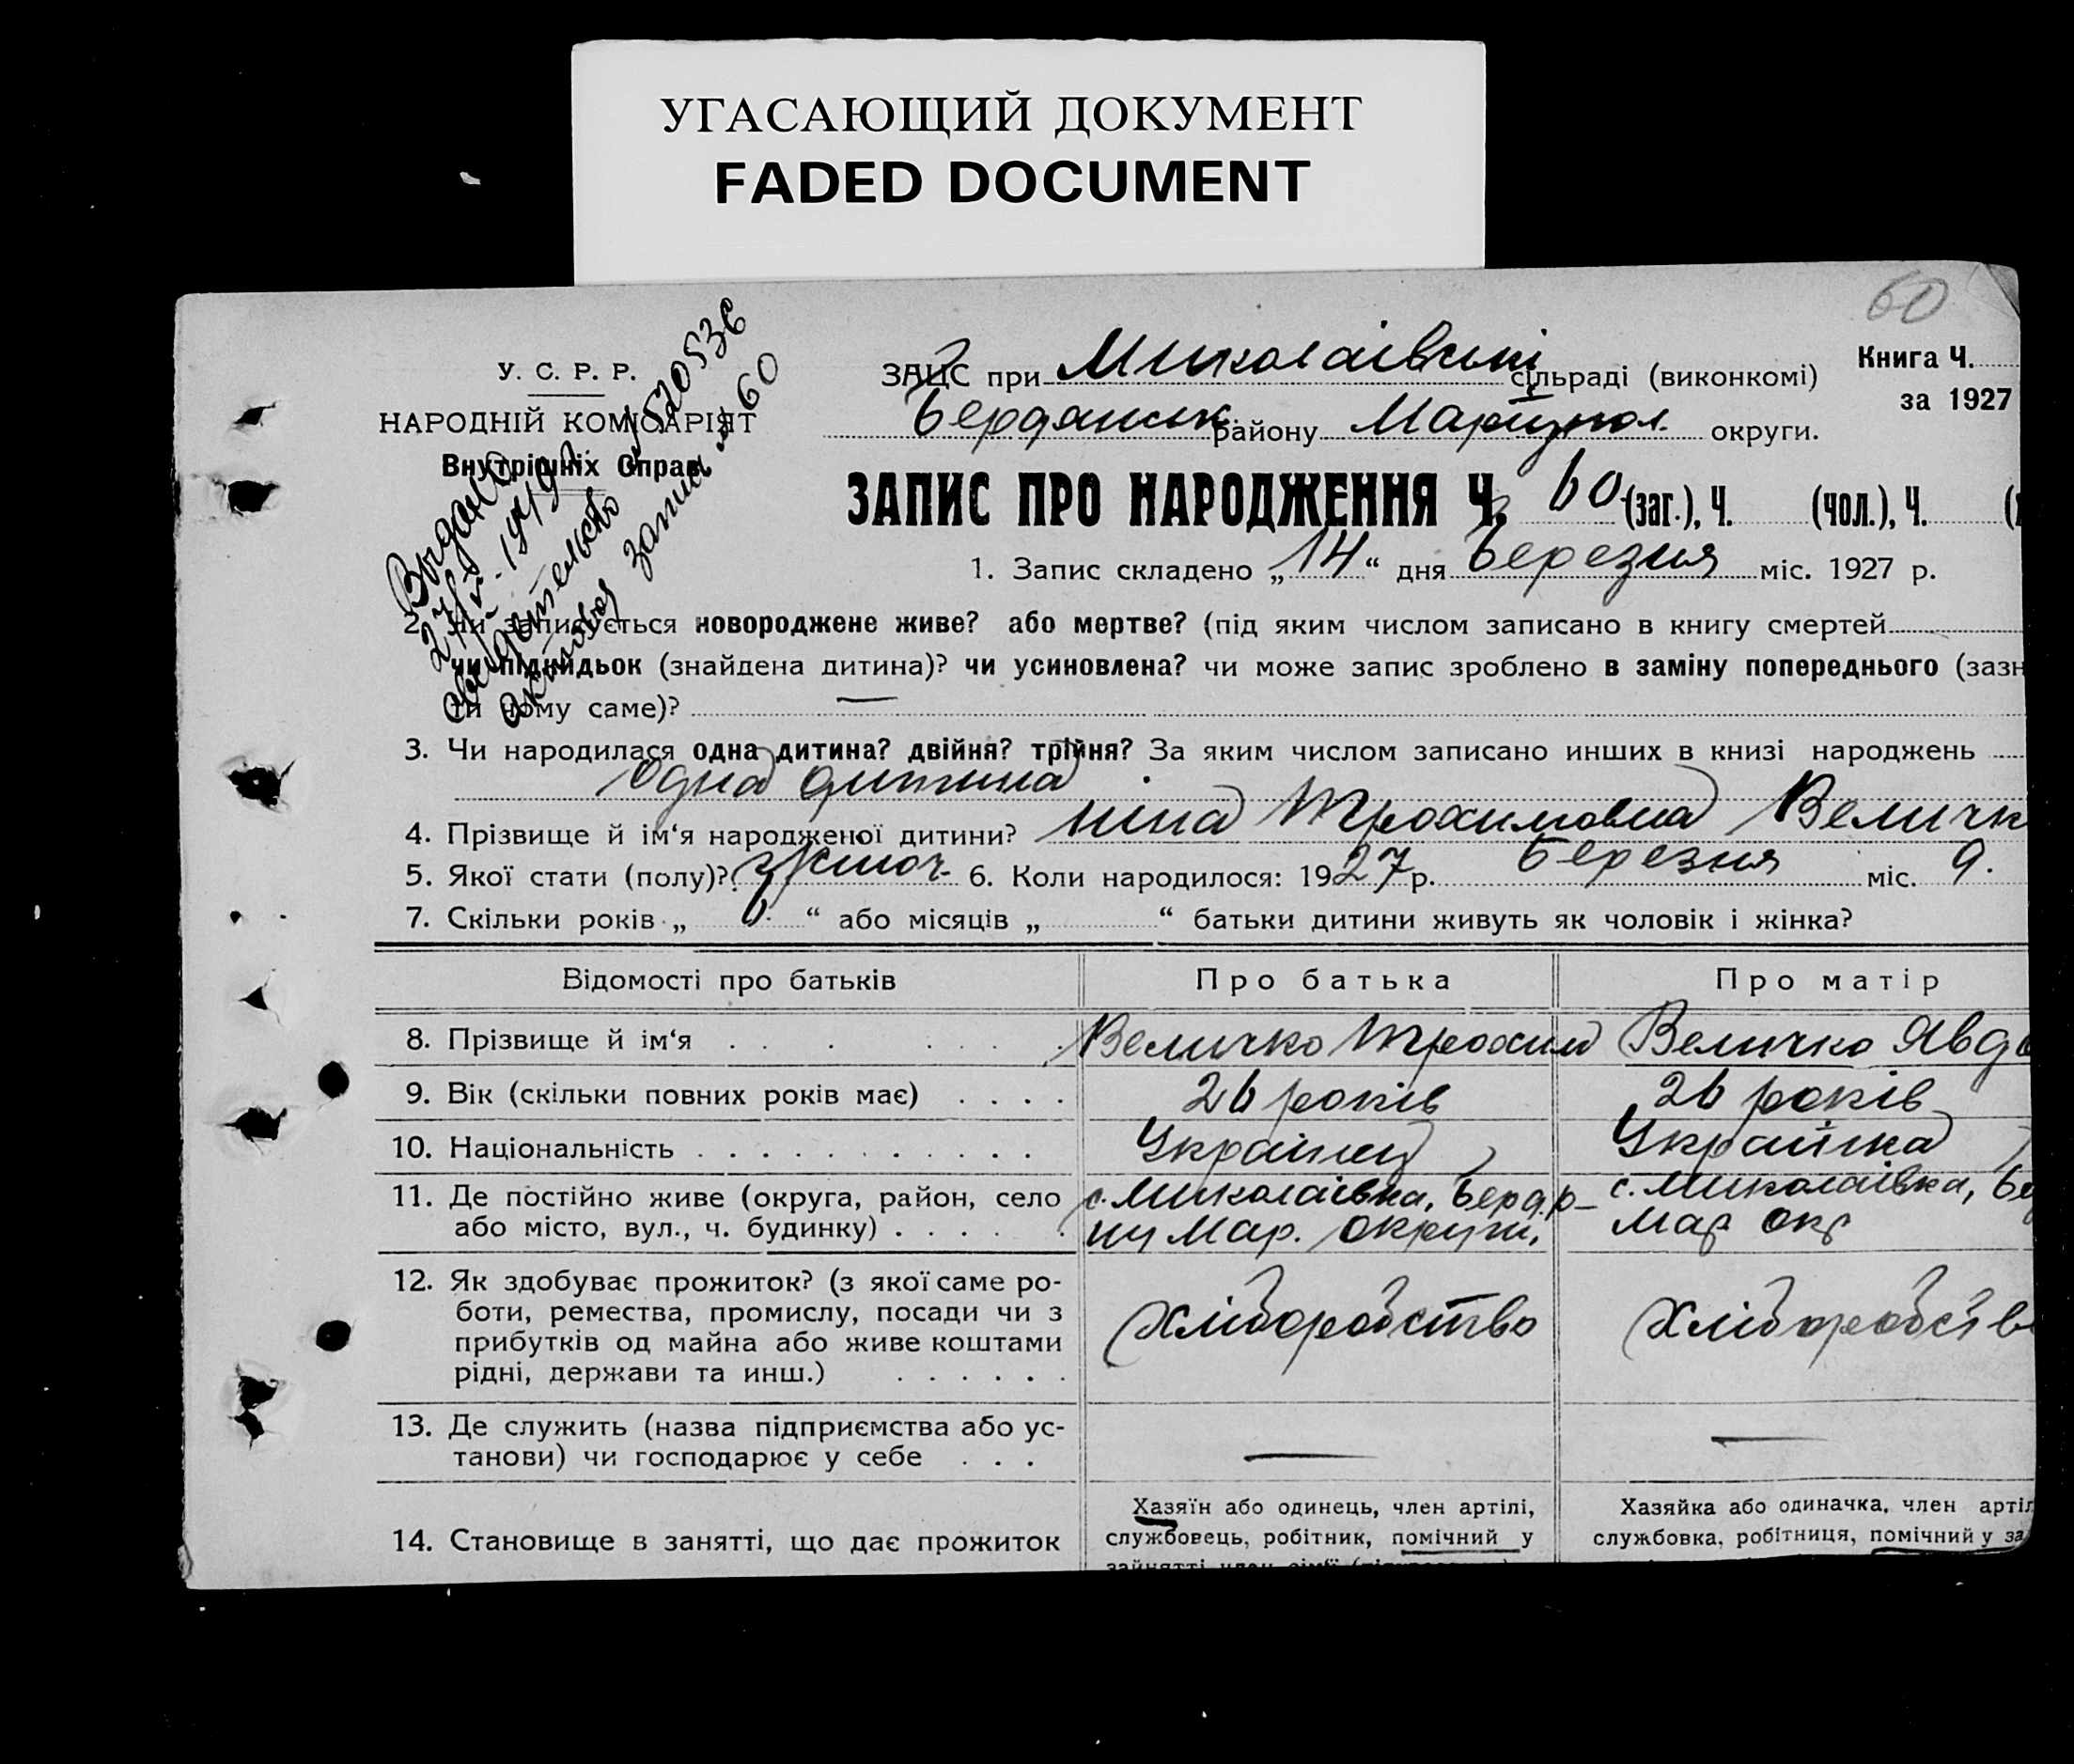 УГАСАЮЩИЙ ДОКУМЕНТ
FADED DOCUMENT
60
У. С. Р. Р.
НАРОДНІЙ КОМІСАРІЯТ
Внутрішніх Справ
Выдано
свидетельство
1520536
актовая запись № 60
ЗАЦС при Миколаївські сільраді (виконкомі)
Бердянськ району Маріупол. округи.
Книга Ч.
за 1927
ЗАПИС ПРО НАРОДЖЕННЯ Ч. 60 (заг.), Ч. (чол.), Ч.
1. Запис складено „14“ дня Березня міс. 1927 р.
2. Чи записується новороджене живе? або мертве? (під яким числом записано в книгу смертей
чи підкидьок (знайдена дитина)? чи усиновлена? чи може запис зроблено в заміну попереднього (зазн
ти чому саме)? —
3. Чи народилася одна дитина? двійня? трійня? За яким числом записано инших в книзі народжень
одна дитина
4. Прізвище й ім‘я народженої дитини? Ніна Трохимовна Величк
5. Якої стати (полу)? жіноч. 6. Коли народилося: 1927 р. Березня міс. 9.
7. Скільки років „ 6. “ або місяців „ “ батьки дитини живуть як чоловік і жінка?
Відомості про батьків Про батька Про матір
8. Прізвище й ім‘я Величко Трохим Величко Явдо
9. Вік (скільки повних років має) 26 років 26 років
10. Національність Українец Українка
11. Де постійно живе (округа, район, село с. Миколаївка, Берд. р– с. Миколаївка, Бе
або місто, вул., ч. будинку) ну Мар. округи, Мар окр
12. Як здобуває прожиток? (з якої саме ро-
боти, ремества, промислу, посади чи з Хліборобство Хліборобств
прибутків од майна або живе коштами
рідні, держави та инш.)
13. Де служить (назва підприємства або ус- — —
танови) чи господарює у себе
Хазяїн або одинець, член артілі, Хазяйка або одиначка, член артіл
14. Становище в занятті, що дає прожиток службовець, робітник, помічний у службовка, робітниця, помічний у за